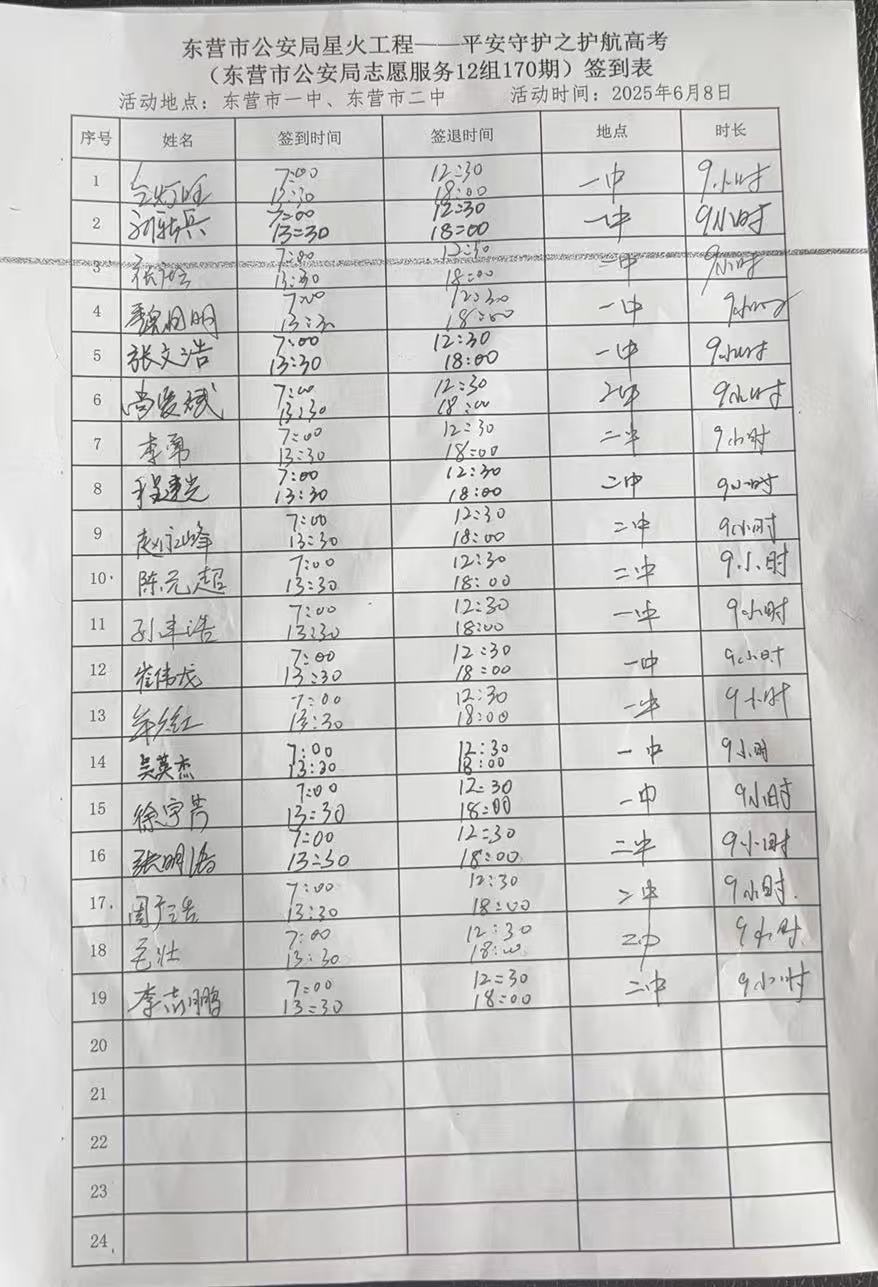 东营市公安局星火工程——平安守护之护航高考
（东营市公安局志愿服务12组170期）签到表
活动地点：东营市一中、东营市二中 活动时间：2025年6月8日
序号 姓名 签到时间 签退时间 地点 时长
1 7:00 12:30 一中 9小时
13:30 18:00
2 7:00 12:30 一中 9小时
13:30 18:00
3 7:00 12:30 二中 9小时
13:30 18:00
4 7:00 12:30 一中 9小时
13:30 18:00
5 张文浩 7:00 12:30 一中 9小时
13:30 18:00
6 尚俊斌 7:00 12:30 2中 9小时
13:30 18:00
7 李勇 7:00 12:30 二中 9小时
13:30 18:00
8 7:00 12:30 二中 9小时
13:30 18:00
9 赵永峰 7:00 12:30 二中 9小时
13:30 18:00
10 陈元超 7:00 12:30 二中 9小时
13:30 18:00
11 7:00 12:30 一中 9小时
13:30 18:00
12 崔伟龙 7:00 12:30 一中 9小时
13:30 18:00
13 7:00 12:30 一中 9小时
13:30 18:00
14 吴英杰 7:00 12:30 一中 9小时
13:30 18:00
15 7:00 12:30 一中 9小时
13:30 18:00
16 7:00 12:30 二中 9小时
13:30 18:00
17 7:00 12:30 二中 9小时
13:30 18:00
18 毛壮 7:00 12:30 二中 9小时
13:30 18:00
19 李志鹏 7:00 12:30 二中 9小时
13:30 18:00
20
21
22
23
24